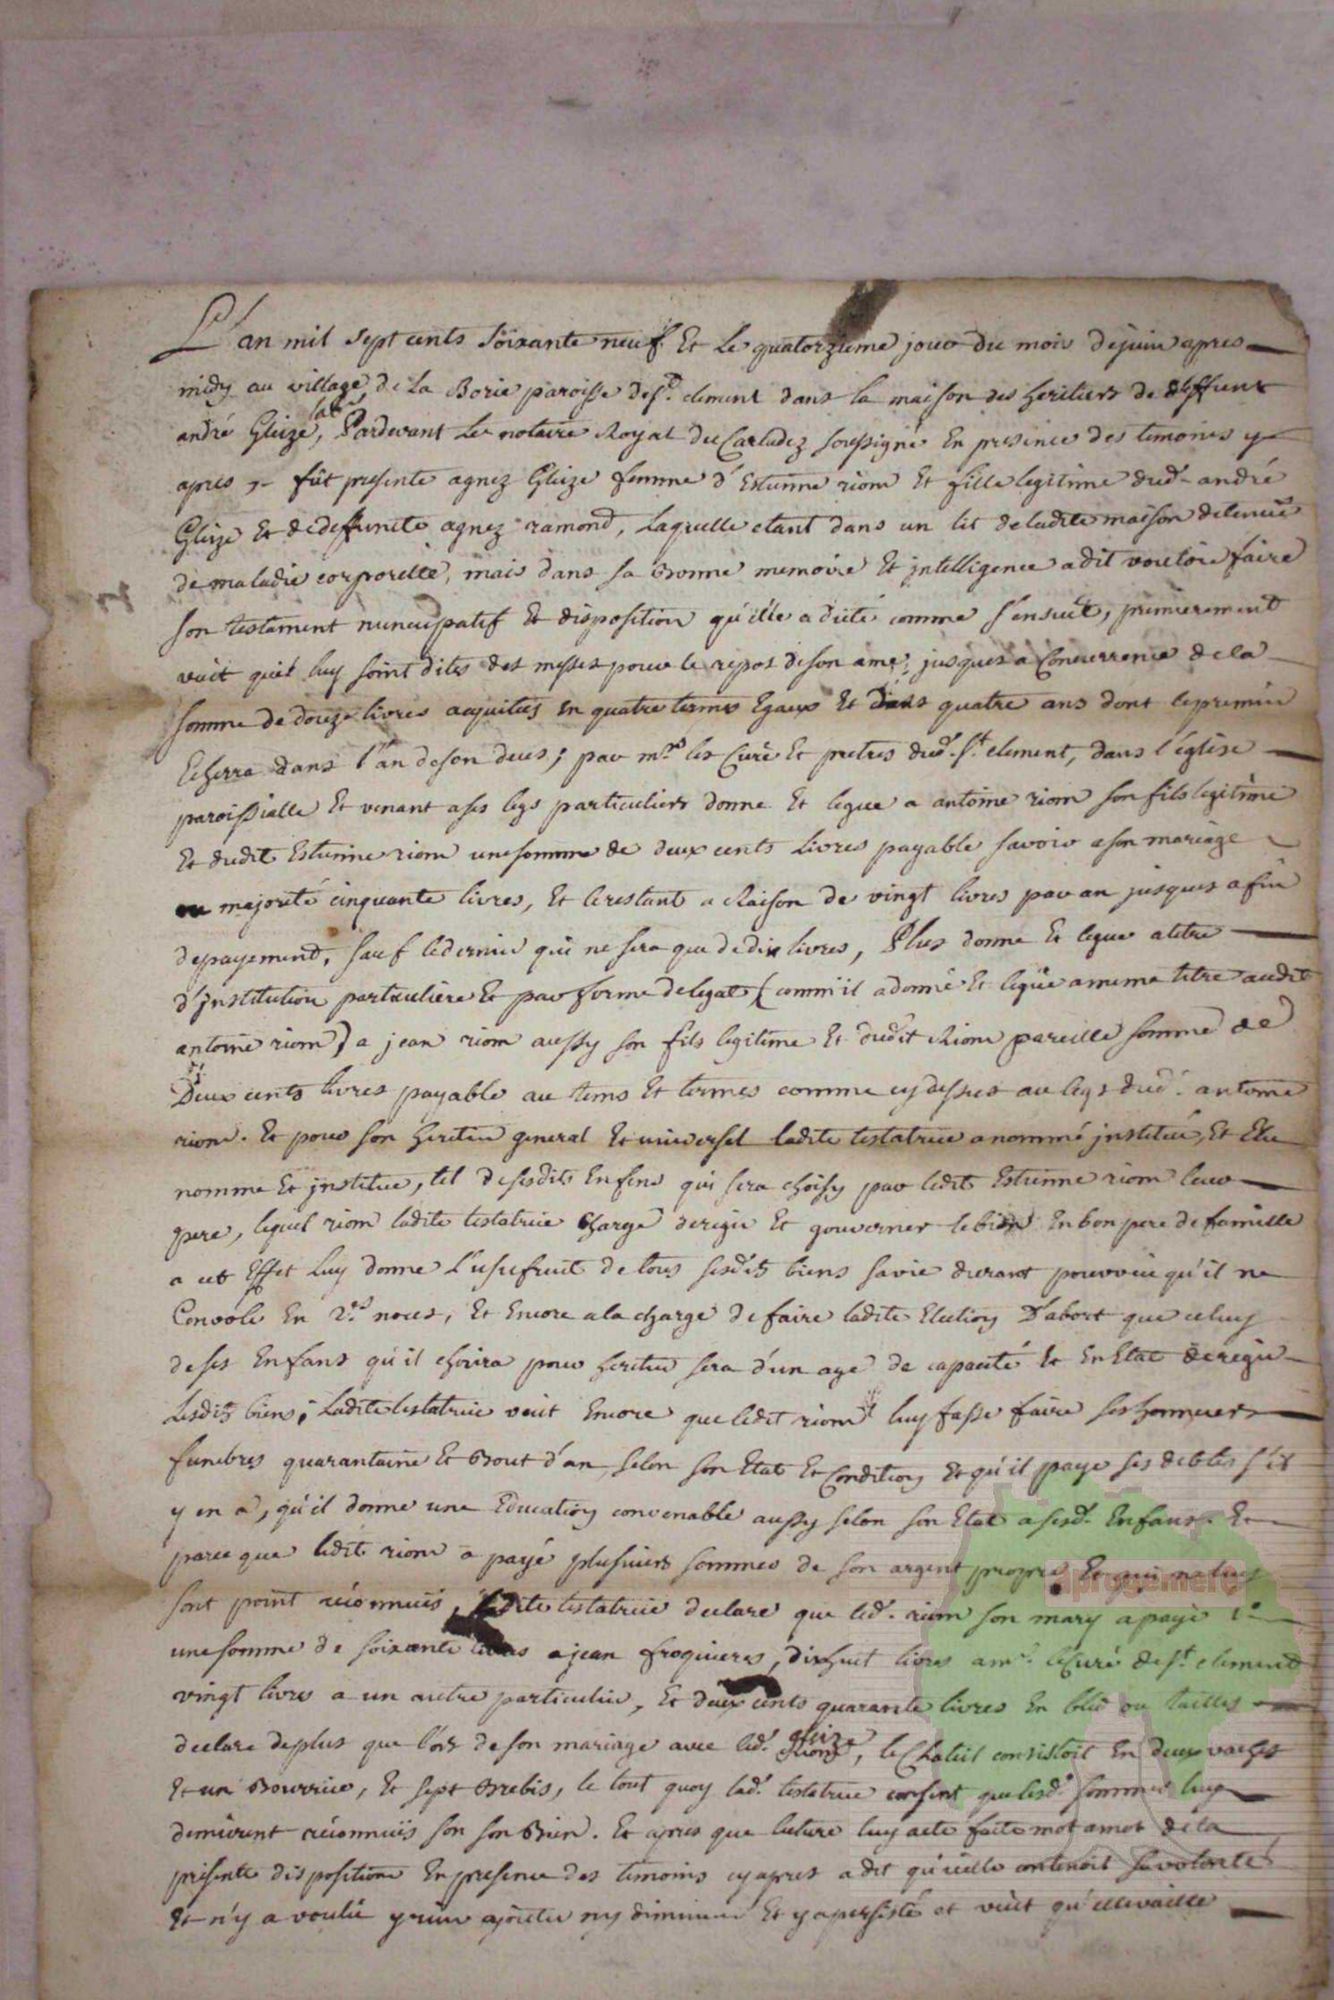 L'an mil sept cents soixante neuf Et Le quatorzieme jour du mois de juin apres
midy au village de La Borie paroisse de st. clement dans la maison des heritiers de deffunt
andré Gleize, Pardevant Le notaire Royal du Carladez soussigné En presence des temoins y
apres fût presente agnez Gleize femme d'Estienne riom Et fille legitime dud. andré
Gleize Et de deffuncte agnez ramond, Laquelle etant dans un lit de ladite maison detenuë
de maladie corporelle, mais dans sa Bonne memoire Et jntelligence a dit vouloir faire
son testament nuncupatif Et disposition qu'elle a dicté comme s'ensuit, premierement
veut qu'il luy soint dites des messes pour le repos de son ame, jusques a Concurrence de la
somme de douze livres acquitées En quatre termes Egaux Et dans quatre ans dont le premier
Echerra dans l'an de son deces; par mrs. les Curé Et pretres dud. st. clement, dans l'église
paroissialle Et venant a ses legs particuliers donne Et legue a antoine riom son fils legitime
Et dudit Estienne riom une somme de deux cents Livres payable savoir a son mariage
ou majorité cinquante livres, Et le restant a Raison de vingt livres par an jusques a fin
de payement, sauf le dernier qui ne sera que de dix livres, Plus donne Et legue a titre
d'jnstitution particuliere Et par forme de legat, (comm'il a donné Et legüé a meme titre audit
antoine riom) a jean riom aussy son fils legitime Et dudit Riom pareille somme de
Deux cents livres payable au tems Et termes comme cy dessus au legs dud. antoine
riom. Et pour son heritier general Et universel ladite testatrice a nommé jnstitué, Et Elle
nomme Et jnstitue, tel de sesdits Enfens qui sera choisy par ledit Estienne riom leur
pere, lequel riom ladite testatrice Charge de regir Et gouverner le bien En bon pere de famille
a cet Effet Luy donne L'usufruit de tous sesdts. biens sa vie durant pourveu qu'il ne
Convole En 2des noces, Et Encore a la charge de faire ladite Election D'abort que celuy
de ses Enfans qu'il choira pour heritier sera d'un age de capacité Et En Etat de regir
Lesdits biens; Ladite testatrice veut Encore que ledit riom luy fasse faire ses honneurs
funebres quarantaine Et Bout d'an selon son Etat Et Condition Et qu'il paye ses debtes s'il
y en a, qu'il donne une Education convenable aussy selon son Etat a sesd. Enfans. Et
parce que ledit riom a payé plusieurs sommes de son argent propre Et qui ne luy
sont point reconnuës, ladite testatrice declare que led. riom son mary a payé 1o
une somme de soixante livres a jean froquieres, dixhuit livres a mr. le Curé de st. clement
vingt livres a un autre particulier, Et deux cents quarante livres En bled ou tailles
declare de plus que Lors de son mariage avec lad. gleize, le Chatel consistoit En deux vaches
Et un Bourrice, Et sept Brebis, le tout quoy lad. testatrice consent que lesd. sommes luy
demeurent reconnuës son son Bien. Et apres que lecture luy a ete faite mot a mot de la
presente disposition En presence des temoins cy apres a dit qu'icelle contenoit sa volonté
Et n'y a voulu y rien ajouter ny diminuer Et y a persisté et veut qu'elle vaille
aprogemere